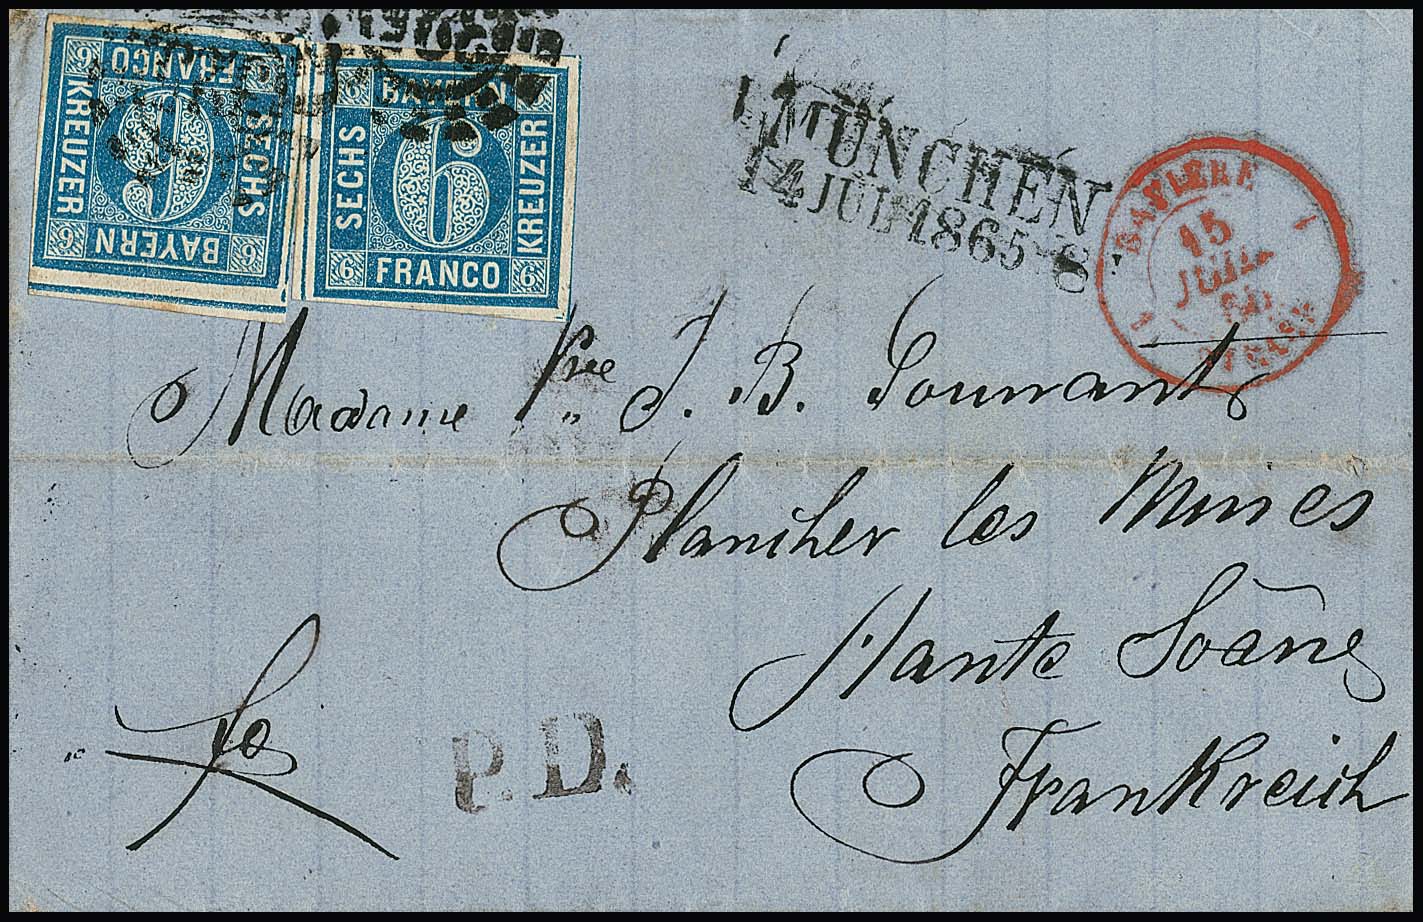 6 FRANCO 6
KREUZER
6
SECHS
6 BAYERN 6
6 BAYERN 6
SECHS
6
KREUZER
6 FRANCO 6
MÜNCHEN
14 JUL 1865
BAVIERE
15
JUIL
Madame Vve J. B.
Plancher les Mines
Haute Soâne
Frankreich
fo
P.D.